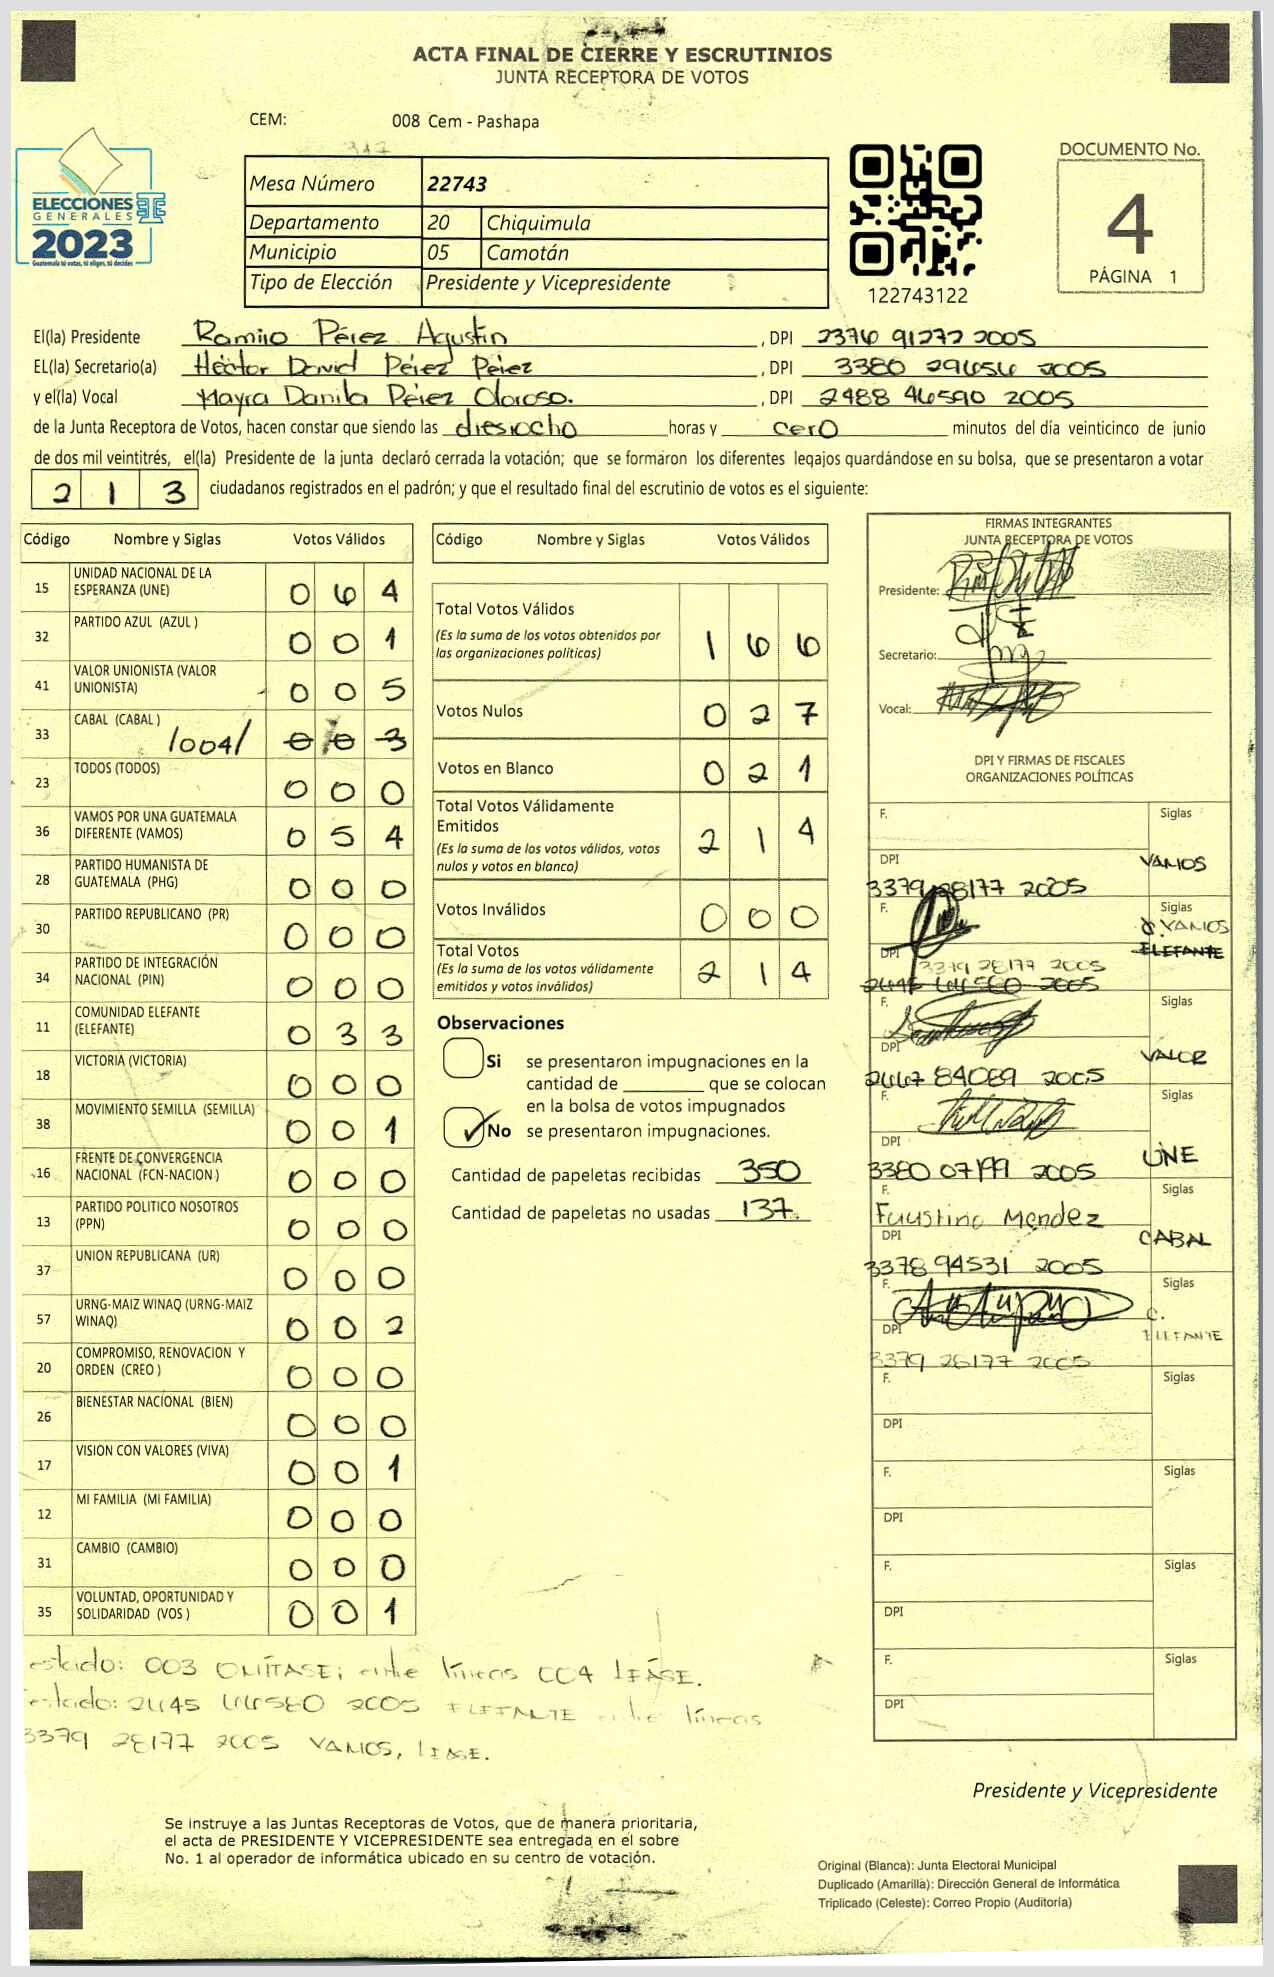 ACTA FINAL DE CIERRE Y ESCRUTINIOS
JUNTA RECEPTORA DE VOTOS
CEM: 008 Cem - Pashapa
ELECCIONES
GENERALES
2023
Guatemala tú votas, tú eliges, tú decides
Mesa Número 22743
Departamento 20 Chiquimula
Municipio 05 Camotán
Tipo de Elección Presidente y Vicepresidente
122743122
DOCUMENTO No.
4
PÁGINA 1
El(la) Presidente Ramiro Pérez Agustin, DPI 2376 91272 2005
EL(la) Secretario(a) Héctor David Pérez Pérez, DPI 3380 29656 2005
y el(la) Vocal Mayra Danila Pérez Oloroso., DPI 2488 46590 2005
de la Junta Receptora de Votos, hacen constar que siendo las diesiocho horas y cero minutos del día veinticinco de junio
de dos mil veintitrés, el(la) Presidente de la junta declaró cerrada la votación; que se formaron los diferentes legajos guardándose en su bolsa, que se presentaron a votar
213 ciudadanos registrados en el padrón; y que el resultado final del escrutinio de votos es el siguiente:
Código Nombre y Siglas Votos Válidos
15 UNIDAD NACIONAL DE LA ESPERANZA (UNE) 0 6 4
32 PARTIDO AZUL (AZUL ) 0 0 1
41 VALOR UNIONISTA (VALOR UNIONISTA) 0 0 5
33 CABAL (CABAL ) /004/ 0 0 3
23 TODOS (TODOS) 0 0 0
36 VAMOS POR UNA GUATEMALA DIFERENTE (VAMOS) 0 5 4
28 PARTIDO HUMANISTA DE GUATEMALA (PHG) 0 0 0
30 PARTIDO REPUBLICANO (PR) 0 0 0
34 PARTIDO DE INTEGRACIÓN NACIONAL (PIN) 0 0 0
11 COMUNIDAD ELEFANTE (ELEFANTE) 0 3 3
18 VICTORIA (VICTORIA) 0 0 0
38 MOVIMIENTO SEMILLA (SEMILLA) 0 0 1
16 FRENTE DE CONVERGENCIA NACIONAL (FCN-NACION ) 0 0 0
13 PARTIDO POLITICO NOSOTROS (PPN) 0 0 0
37 UNION REPUBLICANA (UR) 0 0 0
57 URNG-MAIZ WINAQ (URNG-MAIZ WINAQ) 0 0 2
20 COMPROMISO, RENOVACION Y ORDEN (CREO ) 0 0 0
26 BIENESTAR NACIONAL (BIEN) 0 0 0
17 VISION CON VALORES (VIVA) 0 0 1
12 MI FAMILIA (MI FAMILIA) 0 0 0
31 CAMBIO (CAMBIO) 0 0 0
35 VOLUNTAD, OPORTUNIDAD Y SOLIDARIDAD (VOS ) 0 0 1
Código Nombre y Siglas Votos Válidos
Total Votos Válidos 1 6 6
(Es la suma de los votos obtenidos por
las organizaciones políticas)
Votos Nulos 0 2 7
Votos en Blanco 0 2 1
Total Votos Válidamente
Emitidos 2 1 4
(Es la suma de los votos válidos, votos
nulos y votos en blanco)
Votos Inválidos 0 0 0
Total Votos 2 1 4
(Es la suma de los votos válidamente
emitidos y votos inválidos)
Observaciones
Si se presentaron impugnaciones en la
cantidad de ________ que se colocan
en la bolsa de votos impugnados
No se presentaron impugnaciones.
Cantidad de papeletas recibidas 350
Cantidad de papeletas no usadas 137
FIRMAS INTEGRANTES
JUNTA RECEPTORA DE VOTOS
Presidente:
Secretario:
Vocal:
DPI Y FIRMAS DE FISCALES
ORGANIZACIONES POLÍTICAS
F. Siglas
DPI VAMOS
3379 28177 2005
F. Siglas
C. VAMOS
DPI ELEFANTE
3379 28177 2005
F. Siglas
DPI VALOR
2667 84089 2005
F. Siglas
DPI UNE
3380 07199 2005
F. Siglas
Faustino Mendez
DPI CABAL
3378 94531 2005
F. Siglas
DPI C. ELEFANTE
3379 28177 2005
F. Siglas
DPI
F. Siglas
DPI
F. Siglas
DPI
F. Siglas
DPI
estado: 003 OMÍTASE; entre líneas 004 LEASE.
estado: 2645 2005 ELEFANTE entre líneas
3379 28177 2005 VAMOS, LEASE.
Presidente y Vicepresidente
Se instruye a las Juntas Receptoras de Votos, que de manera prioritaria,
el acta de PRESIDENTE Y VICEPRESIDENTE sea entregada en el sobre
No. 1 al operador de informática ubicado en su centro de votación.
Original (Blanca): Junta Electoral Municipal
Duplicado (Amarilla): Dirección General de Informática
Triplicado (Celeste): Correo Propio (Auditoría)